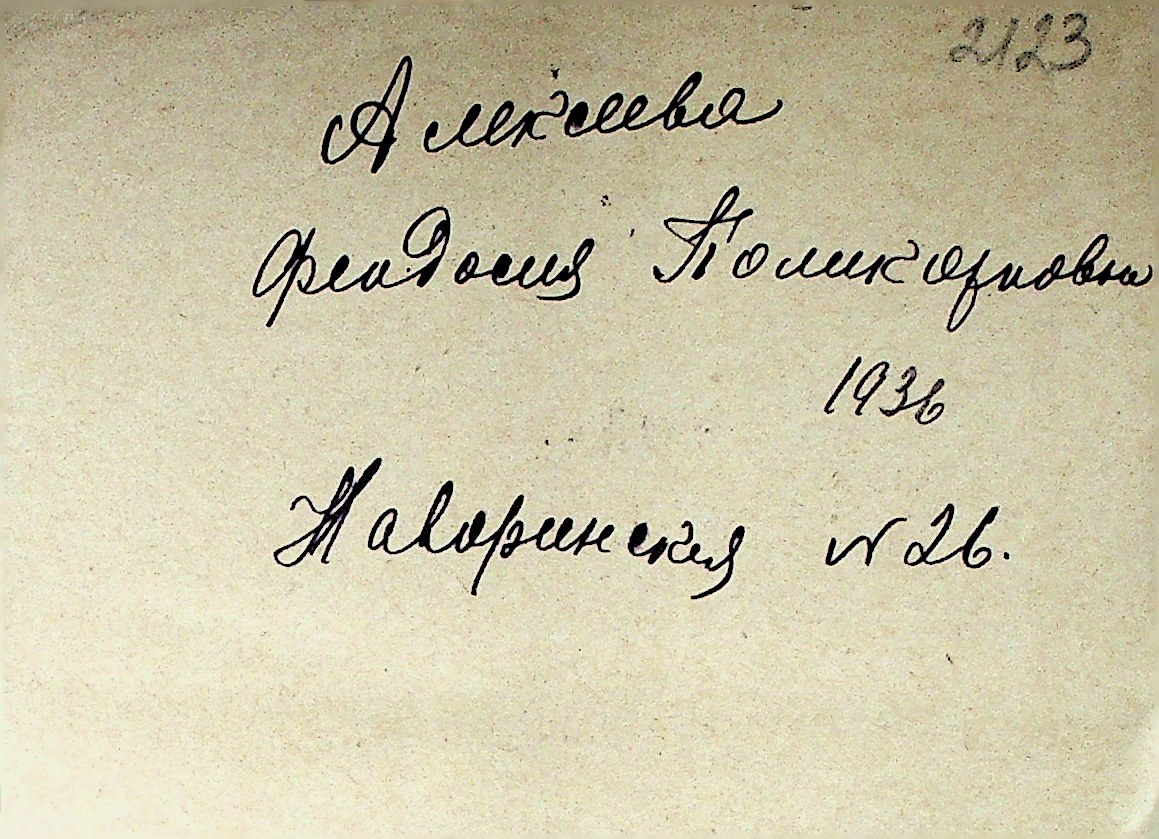 2123
Алексеева
Феодосия Поликарповна
1936
Наваринская № 26.